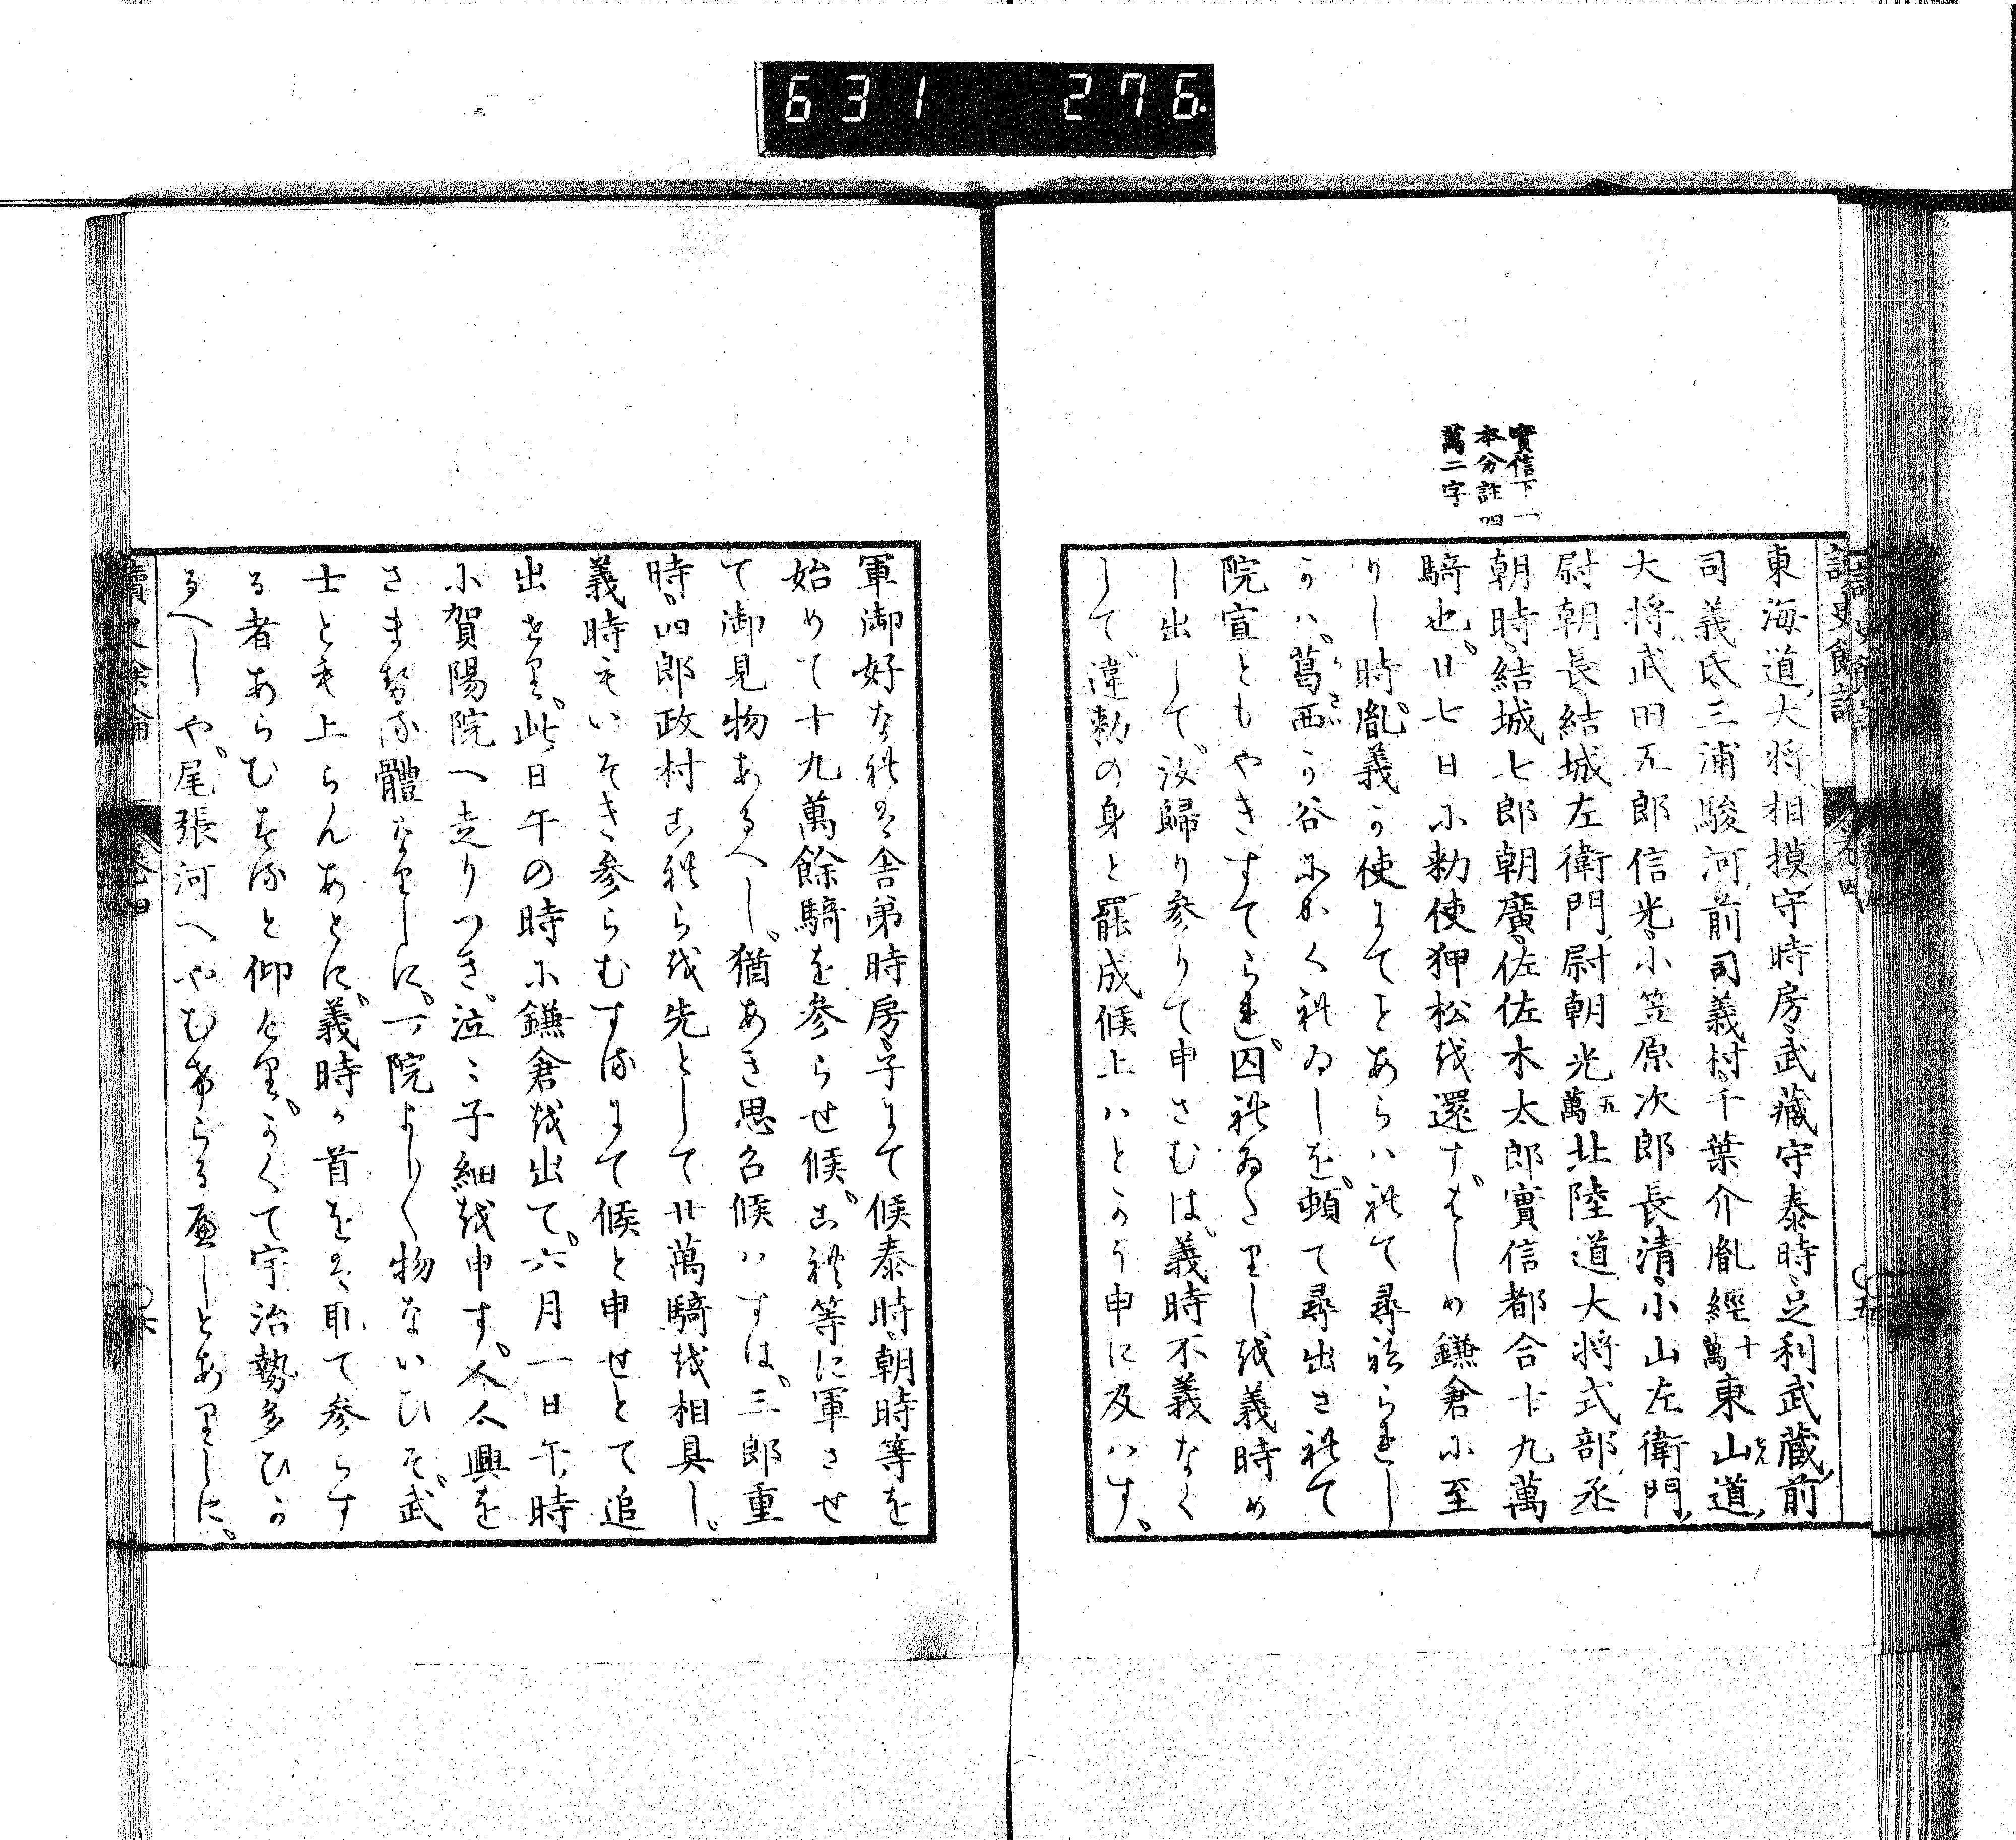 631 276.
實信下一
本分註四
萬二字
東海道、大将、相摸守時房、武藏守泰時、足利武蔵前
司義氏、三浦駿河前司義村、千葉介胤經十萬東山道、
大将、武田五郎信光、小笠原次郎長清、小山左衛門、
尉朝長、結城左衛門尉朝光五萬北陸道、大将式部丞
朝時、結城七郎朝廣、佐佐木太郎實信都合十九萬
騎也。廿七日に勅使狎松を還す。はしめ鎌倉に至
りし時。胤義か使にてとあらハれて尋ねられし
かハ。葛西か谷にかくれゐしを。頓て尋出されて
院宣ともやきすてられ。囚れゐたりしを義時め
し出して。汝歸り参りて申さむは。義時不義なく
して。違勅の身と罷成候上ハとかう申に及ハす。
軍御好なれは舎弟時房。子にて候泰時。朝時等を
始めて十九萬餘騎を参らせ候。これ等に軍させ
て御見物あるへし。猶あき思召候ハすは。三郎重
時。四郎政村これらを先として廿萬騎を相具し。
義時もいそき参らむするにて候と申せとて追
出せり。此日午の時に鎌倉を出て。六月一日午時
に賀陽院へ走りつき。泣ミ子細を申す。人々興を
さませる體なりしに。一院よりく物ないひそ。武
士とも上らんあとに。義時か首をは取て参らす
る者あらむするそと仰けり。かくて宇治勢多ひか
るへしや。尾張河へやむけらる遍しとありしに。
讀史餘論
卷四